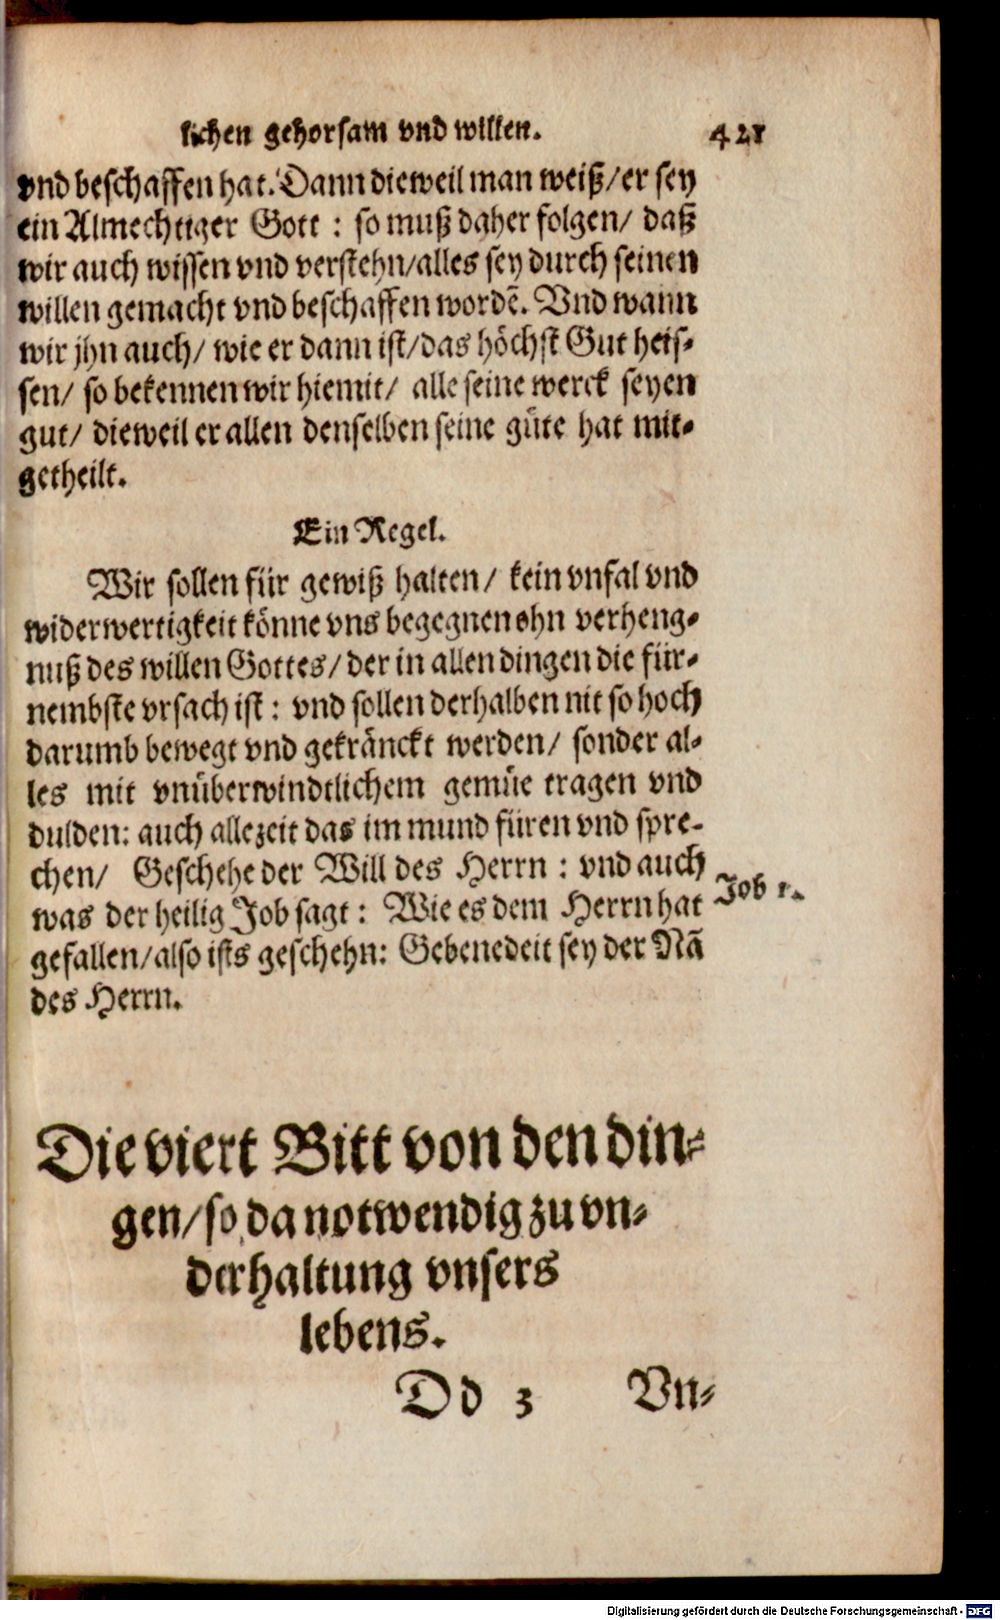 lichen gehorsam vnd willen. 421
vnd beschaffen hat. Dann dieweil man weiß/ er sey
ein Almechtiger Gott : so muß daher folgen/ daß
wir auch wissen vnd verstehn/ alles sey durch seinen
willen gemacht vnd beschaffen wordẽ. Vnd wann
wir jhn auch/ wie er dann ist/ das höchst Gut heis-
sen/ so bekennen wir hiemit/ alle seine werck seyen
gut/ dieweil er allen denselben seine güte hat mit-
getheilt.
Ein Regel.
Wir sollen für gewiß halten/ kein vnfal vnd
widerwertigkeit könne vns begegnen ohn verheng-
nuß des willen Gottes/ der in allen dingen die für-
nembste vrsach ist : vnd sollen derhalben nit so hoch
darumb bewegt vnd gekränckt werden/ sonder al-
les mit vnüberwindtlichem gemüe tragen vnd
dulden: auch allezeit das im mund füren vnd spre-
chen/ Geschehe der Will des Herrn : vnd auch
was der heilig Job sagt : Wie es dem Herrn hat
Job 1.
gefallen/ also ists geschehn: Gebenedeit sey der Nã
des Herrn.
Die viert Bitt von den din-
gen/ so da notwendig zu vn-
derhaltung vnsers
lebens.
Dd 3 Vn-
Digitalisierung gefördert durch die Deutsche Forschungsgemeinschaft - DFG